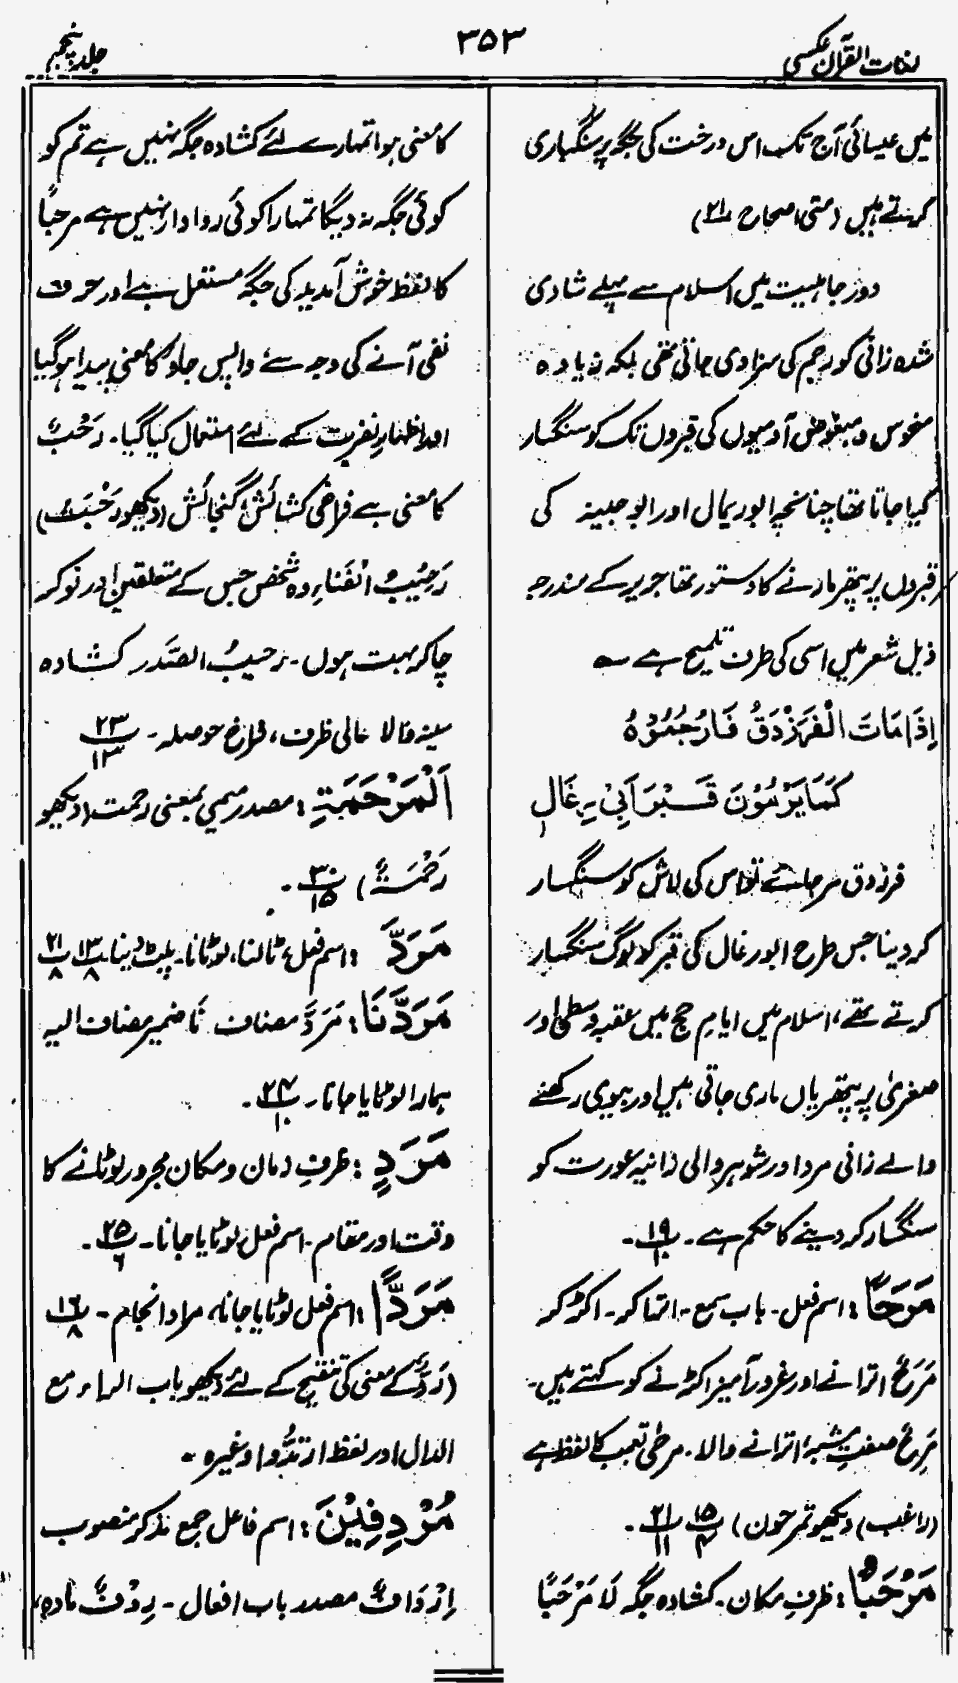 لغات القرآن عکسی
۳۵۳
جلد پنجم
میں عیسائی آج تک اس درخت کی جگہ پر سنگباری
کرتے ہیں (متی اصحاح ۲۱)
دور جاہلیت میں اسلام سے پہلے شادی
شدہ زانی کو رجم کی سزا دی جاتی تھی بلکہ زیادہ
منحوس و مبغوض آدمیوں کی قبروں تک کو سنگسار
کیا جاتا تھا چنانچہ ابو ریمال اور ابو جبینہ کی
قبروں پر پتھر مارنے کا دستور تھا جریر کے مندرجہ
ذیل شعر میں اسی کی طرف تلمیح ہے ؎
اِذَا مَاتَ الْفَرَزْدَقُ فَارْجُمُوْهُ
كَمَا يَرْمُوْنَ قَبْرَ اَبِيْ رِغَالِ
فرزدق مر جائے تو اس کی لاش کو سنگسار
کر دینا جس طرح ابو رغال کی قبر کو لوگ سنگسار
کرتے تھے، اسلام میں ایام حج میں عقبہ وسطیٰ اور
صغریٰ پر پتھریاں ماری جاتی ہیں اور بیوی رکھنے
والے زانی مرد اور شوہر والی زانیہ عورت کو
سنگسار کر دینے کا حکم ہے۔ ۱۹/۱۰۔
مَرَحًا: اسم فعل۔ باب سمع۔ اترا کر۔ اکڑ کر
مَرَحٌ اترانے اور غرور آمیز اکڑنے کو کہتے ہیں۔
مَرِحٌ صفت مشبہ اترانے والا۔ مرحٰی تعجب کا لفظ ہے
(راغب) دیکھو تمرحون) ۱۵/۴ ۲۱/۱۱۔
مَرْحَبًا: ظرف مکان۔ کشادہ جگہ لَا مَرْحَبًا
کا معنی ہوا تمہارے لئے کشادہ جگہ نہیں ہے تم کو
کوئی جگہ نہ دیگا تمہارا کوئی روادار نہیں ہے مرحبًا
کا لفظ خوش آمدید کی جگہ مستعمل ہے اور حرف
نفی آنے کی وجہ سے واپس جاؤ کا معنی پیدا ہو گیا
اور اظہار نفرت کے لئے استعمال کیا گیا۔ رَحْبٌ
کا معنی ہے فراخی کشائش گنجائش (دیکھو رَحُبَتْ)
رَحِیْبُ الْفَنَاءِ وہ شخص جس کے متعلقین اور نوکر
چاکر بہت ہوں۔ رحیبُ الصَّدر کشادہ
سینہ والا عالی ظرف، فراخ حوصلہ۔ ۲۳/۱۳
اَلْمَرْحَمَةِ: مصدر میمی بمعنی رحمت (دیکھو
رَحْمَۃٌ) ۳۰/۱۵۔
مَرَدَّ: اسم فعل، ٹالنا، لوٹانا۔ پلٹ دینا ۱۳/۸ ۲۱/۸
مَرَدَّنَا: مَرَدَّ مضاف نَا ضمیر مضاف الیہ
ہمارا لوٹایا جانا۔ ۲۴/۱۰۔
مَرَدٍّ: ظرف زمان و مکان مجرور لوٹانے کا
وقت اور مقام۔ اسم فعل لوٹایا جانا۔ ۲۵/۶۔
مَرَدًّا: اسم فعل لوٹایا جانا، مراد انجام۔ ۱۶/۸
(رَدٌّ کے معنی کی تنقیح کے لئے دیکھو باب الراء مع
الدال اور لفظ ارتدُّوا وغیرہ۔
مُرْدِفِيْنَ: اسم فاعل جمع مذکر منصوب
اِرْدَافٌ مصدر باب افعال۔ رِدْفٌ مادہ،